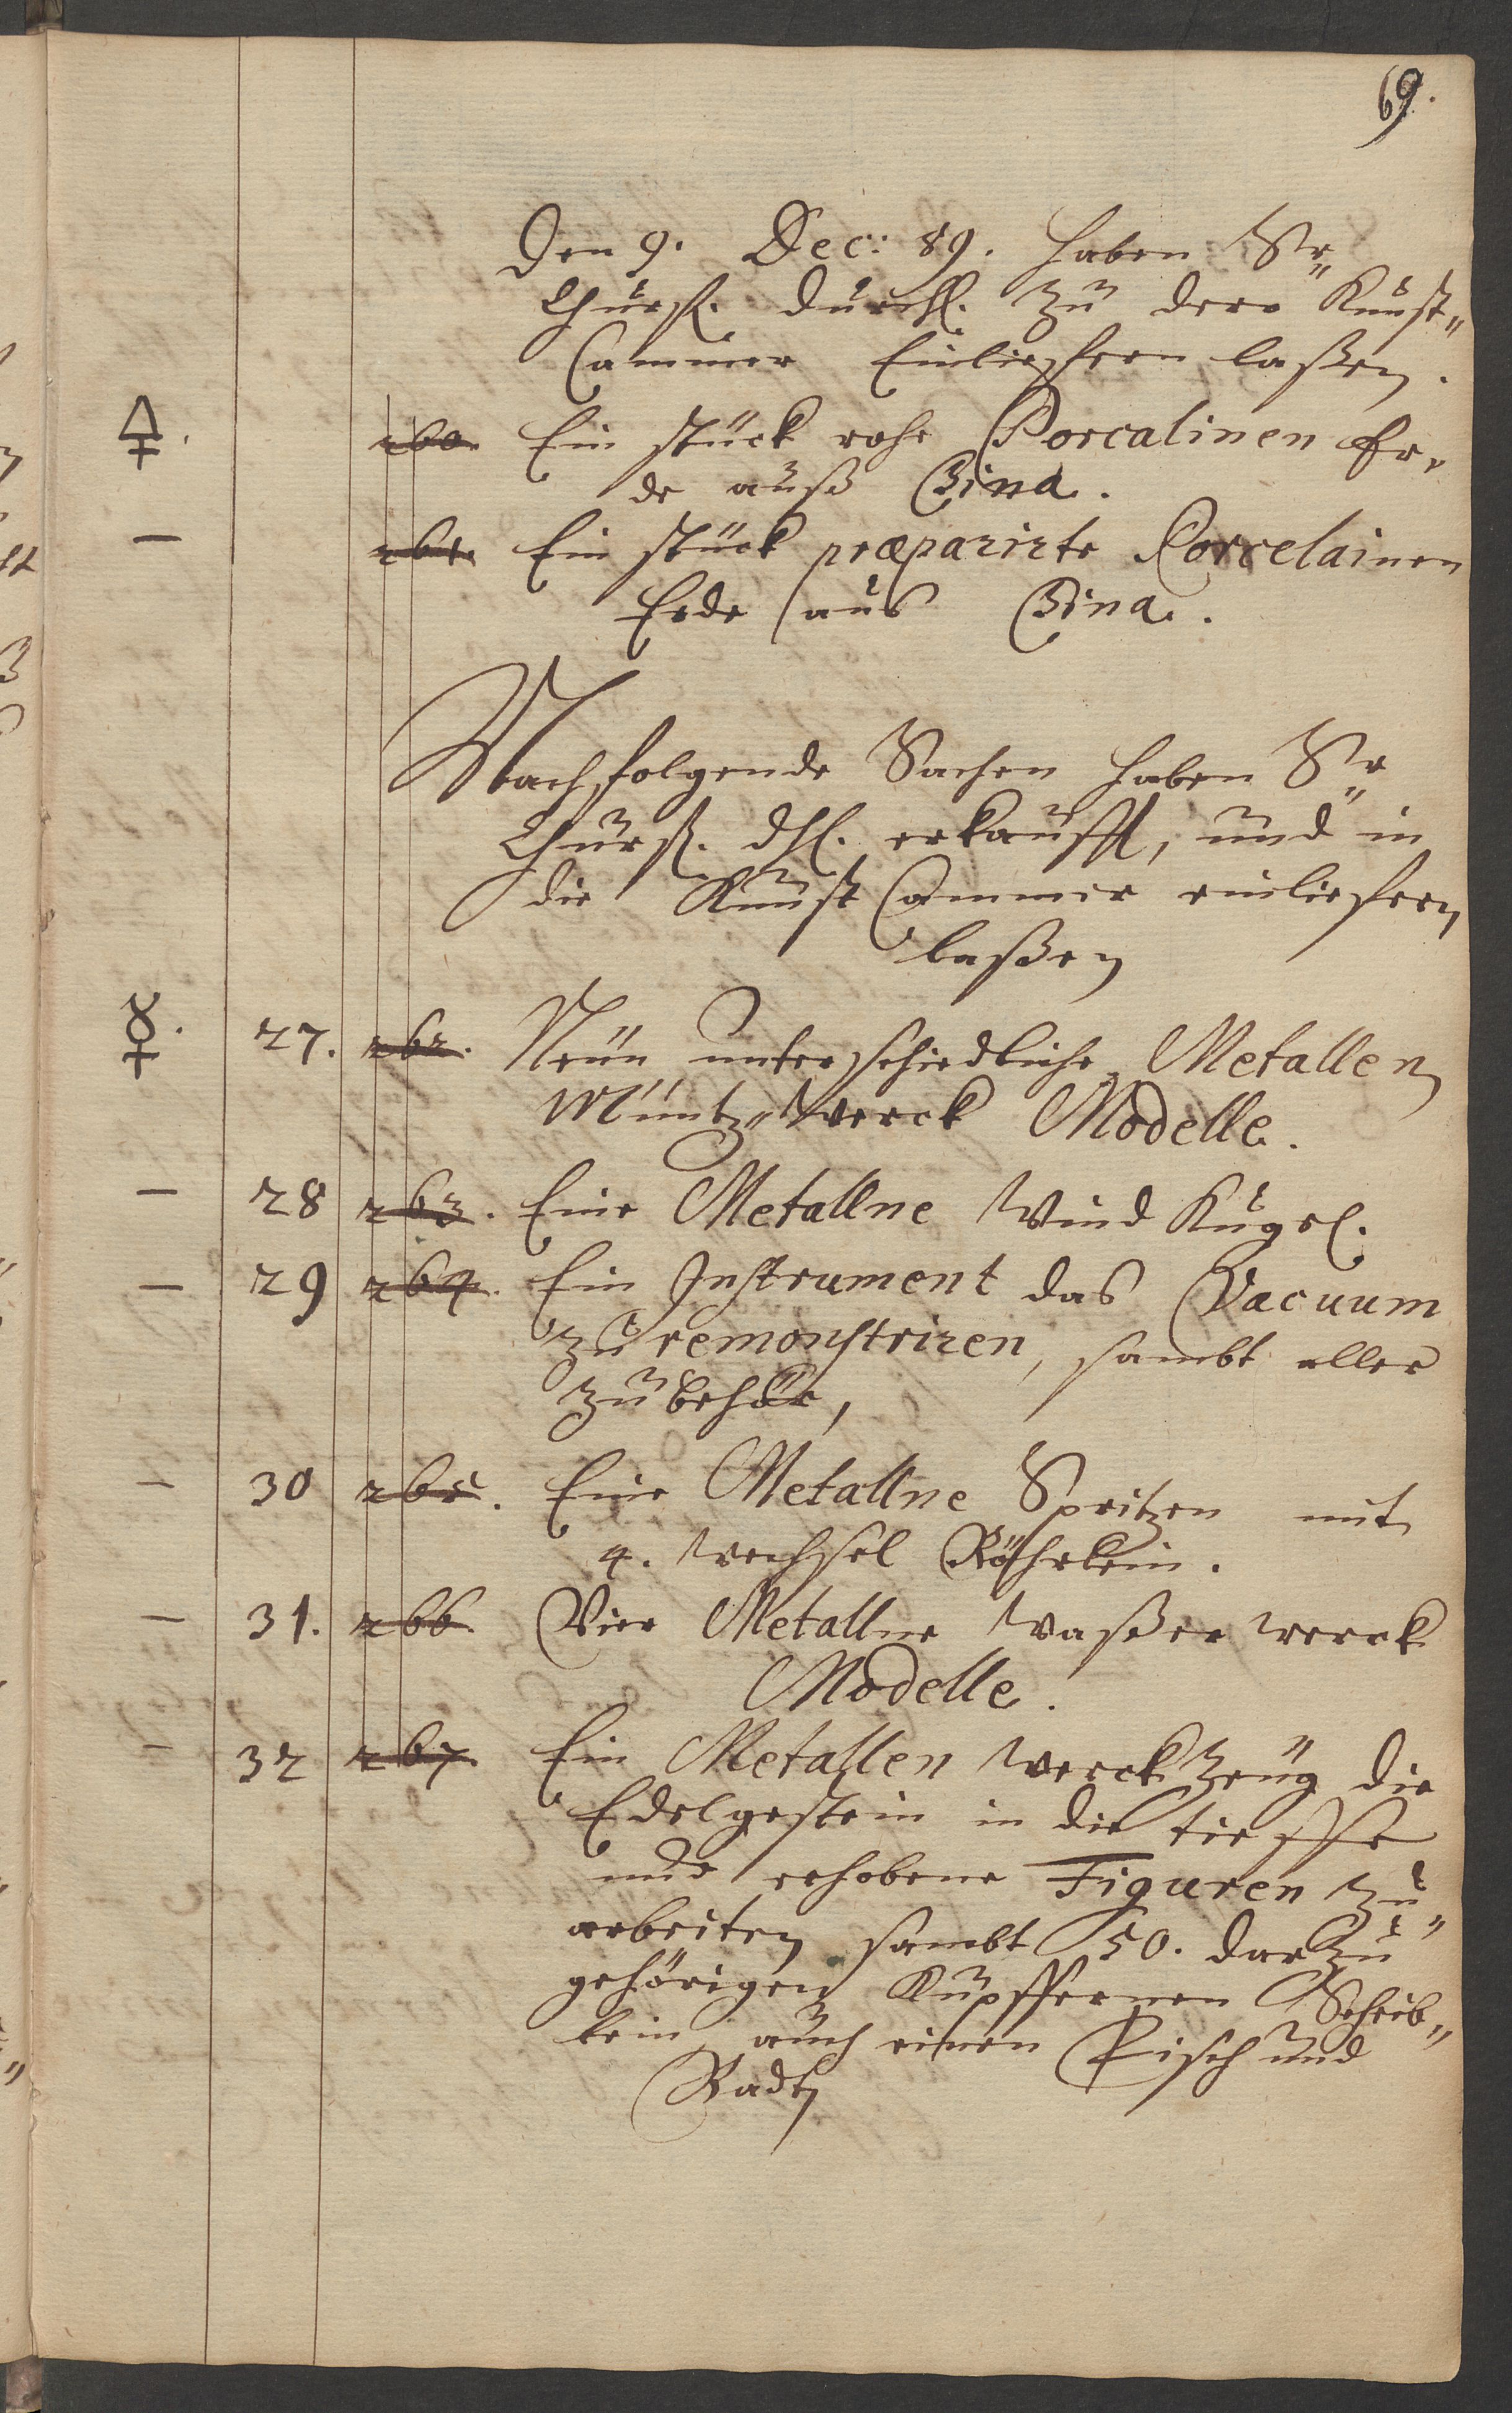 69.
Den 9. Dec: 89. haben Sr„
Churf. Durchl. zu dero Kunst„
Cammer Einliefferen laßen.
🜍. 260. Ein stück rohe Porcalinen Er„
de auß China.
— 261. Ein stück præparirte Porcelainen
Erde aus China.
Nachfolgende Sachen haben Sr„
Churf. dhl. erkaufft, und in
die Kunst Cammer einliefern
laßen
☿. 27. 262. Neün unterschiedliche Metallen
Müntz„Werck Modelle.
— 28 263. Eine Metallne Wind Kugel.
— 29 264. Ein Instrument das Vacuum
zu remonstriren, sambt aller
zubehör,
— 30 265. Eine Metallne Spritzen mit
4. Wechsel Röhrlein.
— 31. 266. Vier Metallne Waßer werck
Modelle.
— 32 267. Ein Metallen Werck Zeüg die
Edelgestein in die tieffe
und erhobene Figuren zu„
arbeiten sambt 50. darzu
gehörigen Kupffernen Scheib„
lein, auch einen Tisch und
Radt